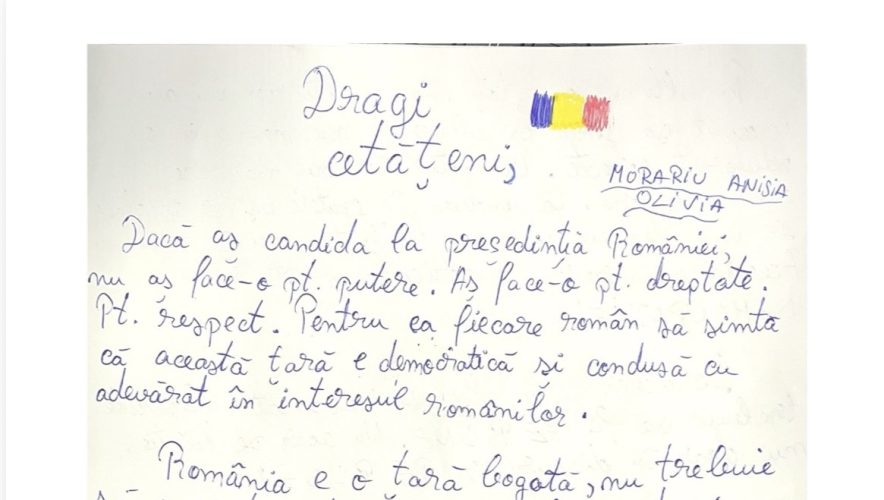 Dragi
cetățeni,
MORARIU ANISIA
OLIVIA
Dacă aș candida la președinția României,
nu aș face-o pt. putere. Aș face-o pt. dreptate.
Pt. respect. Pentru ca fiecare român să simtă
că această țară e democratică și condusă cu
adevărat în interesul românilor.
România e o țară bogată, nu trebuie